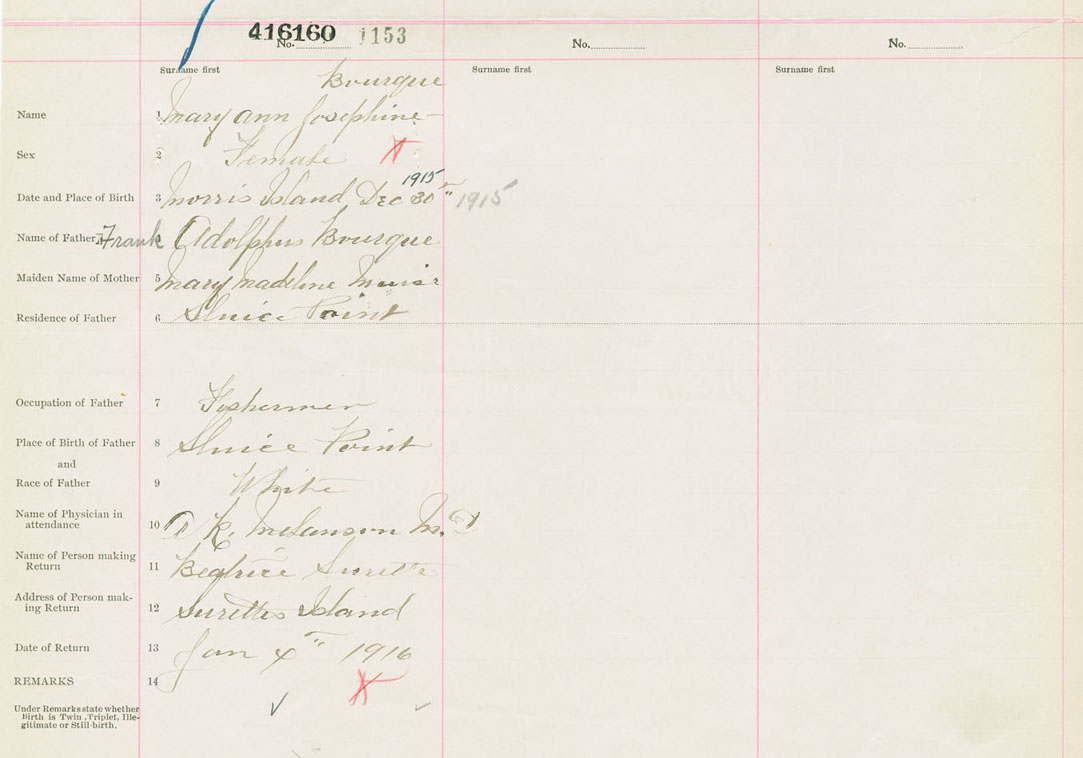 416160 1153
No. No. No.
Surname first Surname first Surname first
Bourque
Name 1 Mary Ann Josephine
Sex 2 Female
1915
Date and Place of Birth 3 Morris Island Dec 30th 1915
Name of Father Frank Adolphus Bourque
Maiden Name of Mother 5 Mary Madeline Muise
Residence of Father 6 Sluice Point
Occupation of Father 7 Fishermen
Place of Birth of Father 8 Sluice Point
and
Race of Father 9 White
Name of Physician in
attendance 10 K. Melanson M.D
Name of Person making
Return 11 Beatrice Surette
Address of Person mak-
ing Return 12 Surettes Island
Date of Return 13 Jan 4th 1916
REMARKS 14
Under Remarks state whether
Birth is Twin, Triplet, Ille-
gitimate or Still-birth.